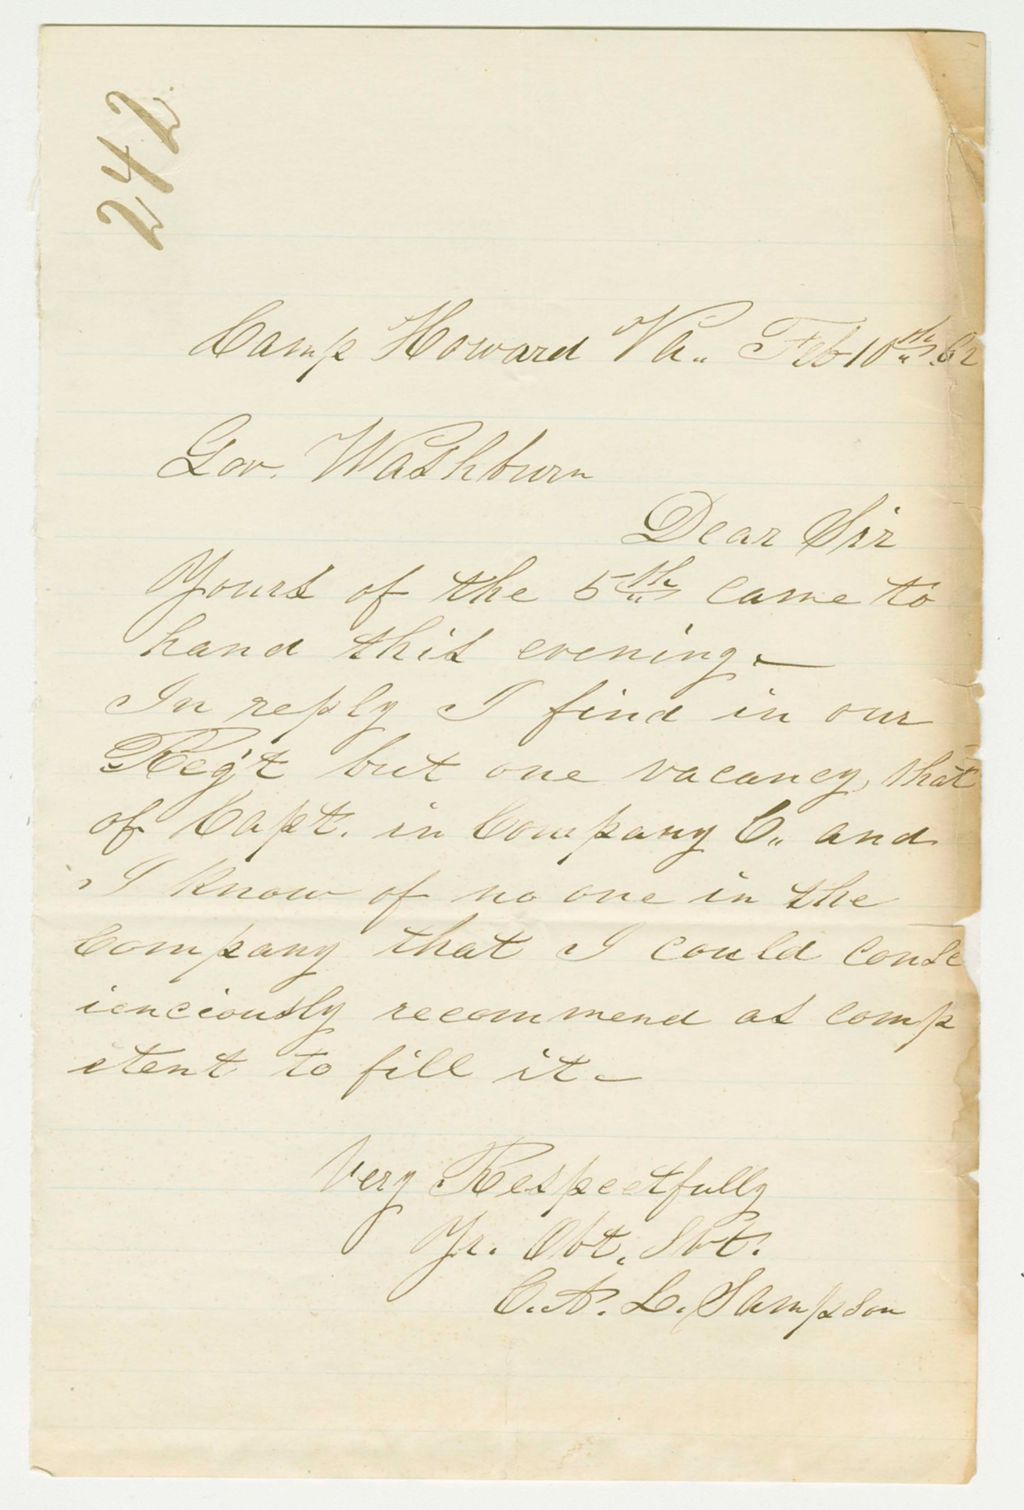 242
Camp Howard Va. Feb 10th 62
Gov. Washburn
Dear Sir
Yours of the 5th came to
hand this evening.—
In reply I find in our
Reg't but one vacancy, that
of Capt. in Company C. and
I know of no one in the
Company that I could consc
ienciously recommend as comp
etent to fill it—
Very Respectfully
Yr. Obt. Svt.
C. A. L. Sampson